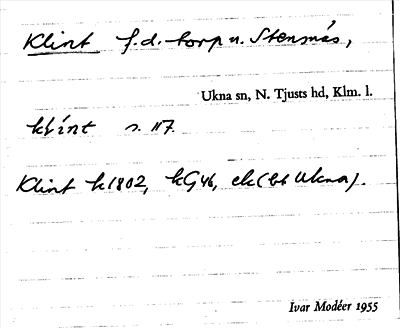 Klint f.d. torp u. Stensnäs,
Ukna sn, N. Tjusts hd, Klm. l.
s. 117.
Klint k1802, kG46, ek (bt Ukna).
Ivar Modéer 1955